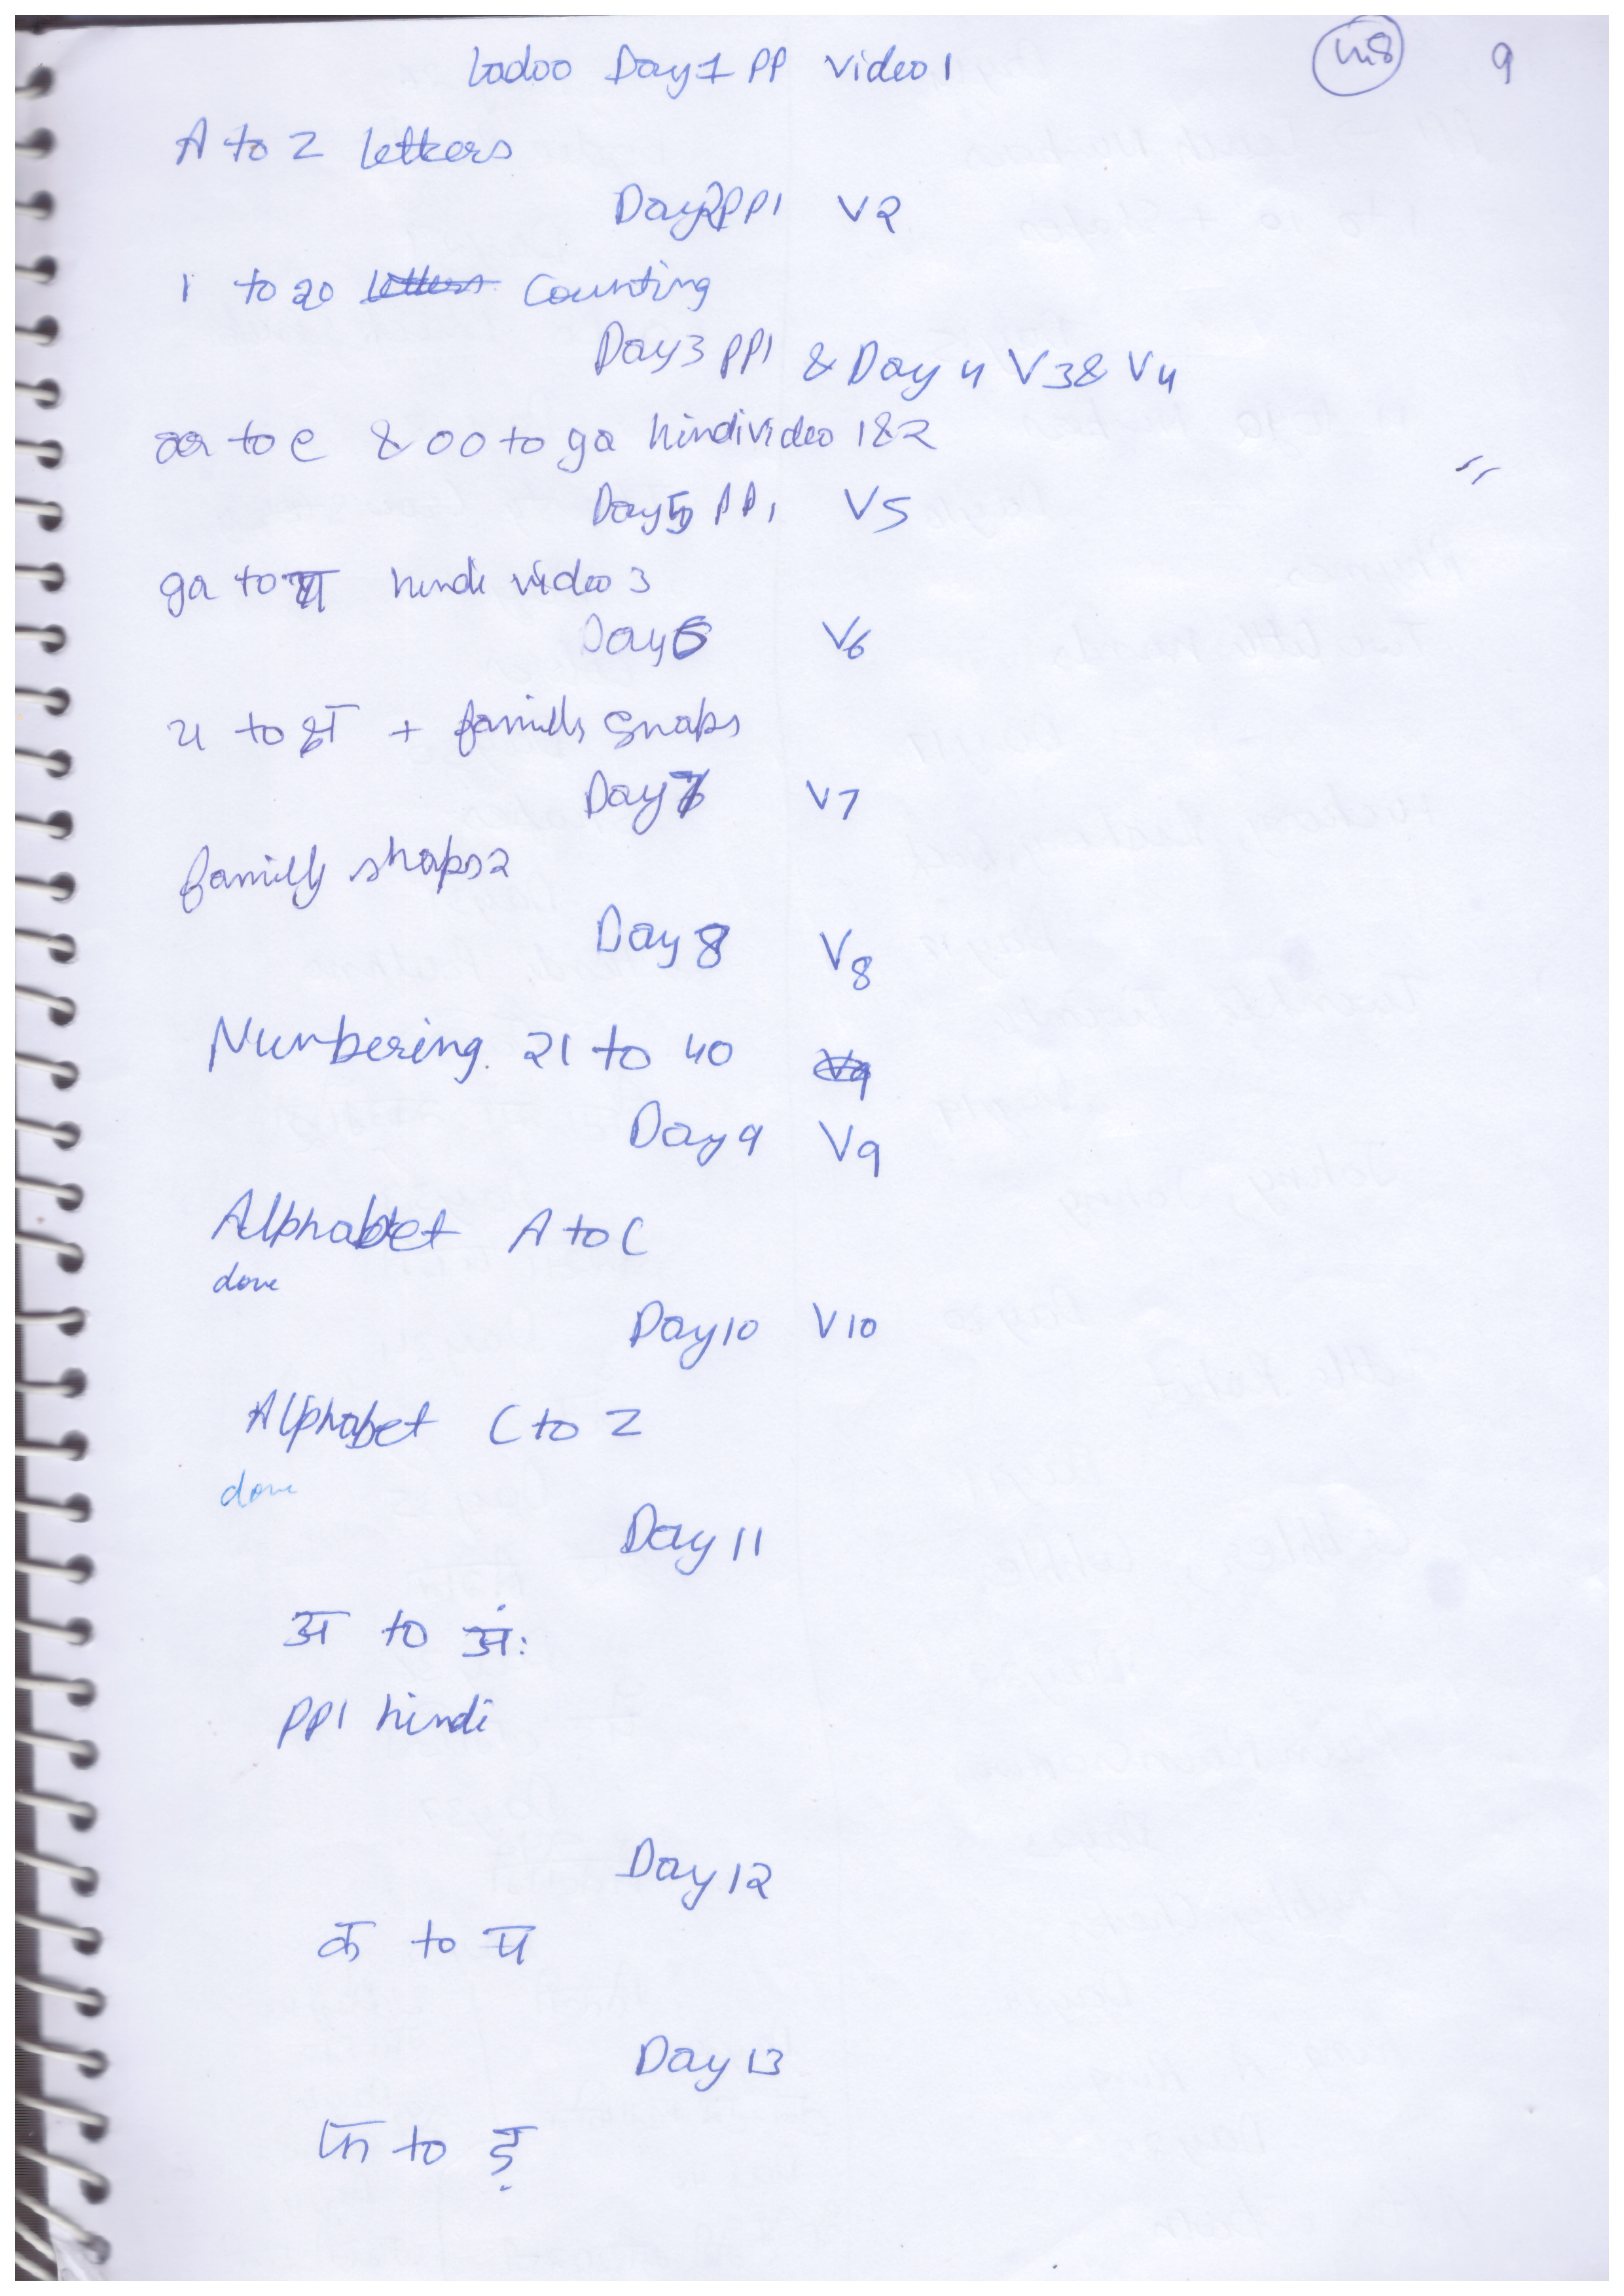 Ladoo Day 1 PP Video 1
418 9
A to Z letters
Day 2 PP1 V2
1 to 20 letters Counting
Day 3 PP1 & Day 4 V3 & V4
to e & oo to ga hindi video 1&2
Day 5 PP1 V5
ga to hindi video 3
Day 6 V6
य to ज्ञ + family snaps
Day 7 V7
family shaps 2
Day 8 V8
Numbering. 21 to 40 V9
Day 9 V9
Alphabet A to C
done
Day 10 V10
Alphabet C to Z
done
Day 11
अ to अं:
PP1 hindi
Day 12
क to प
Day 13
फ to ड़